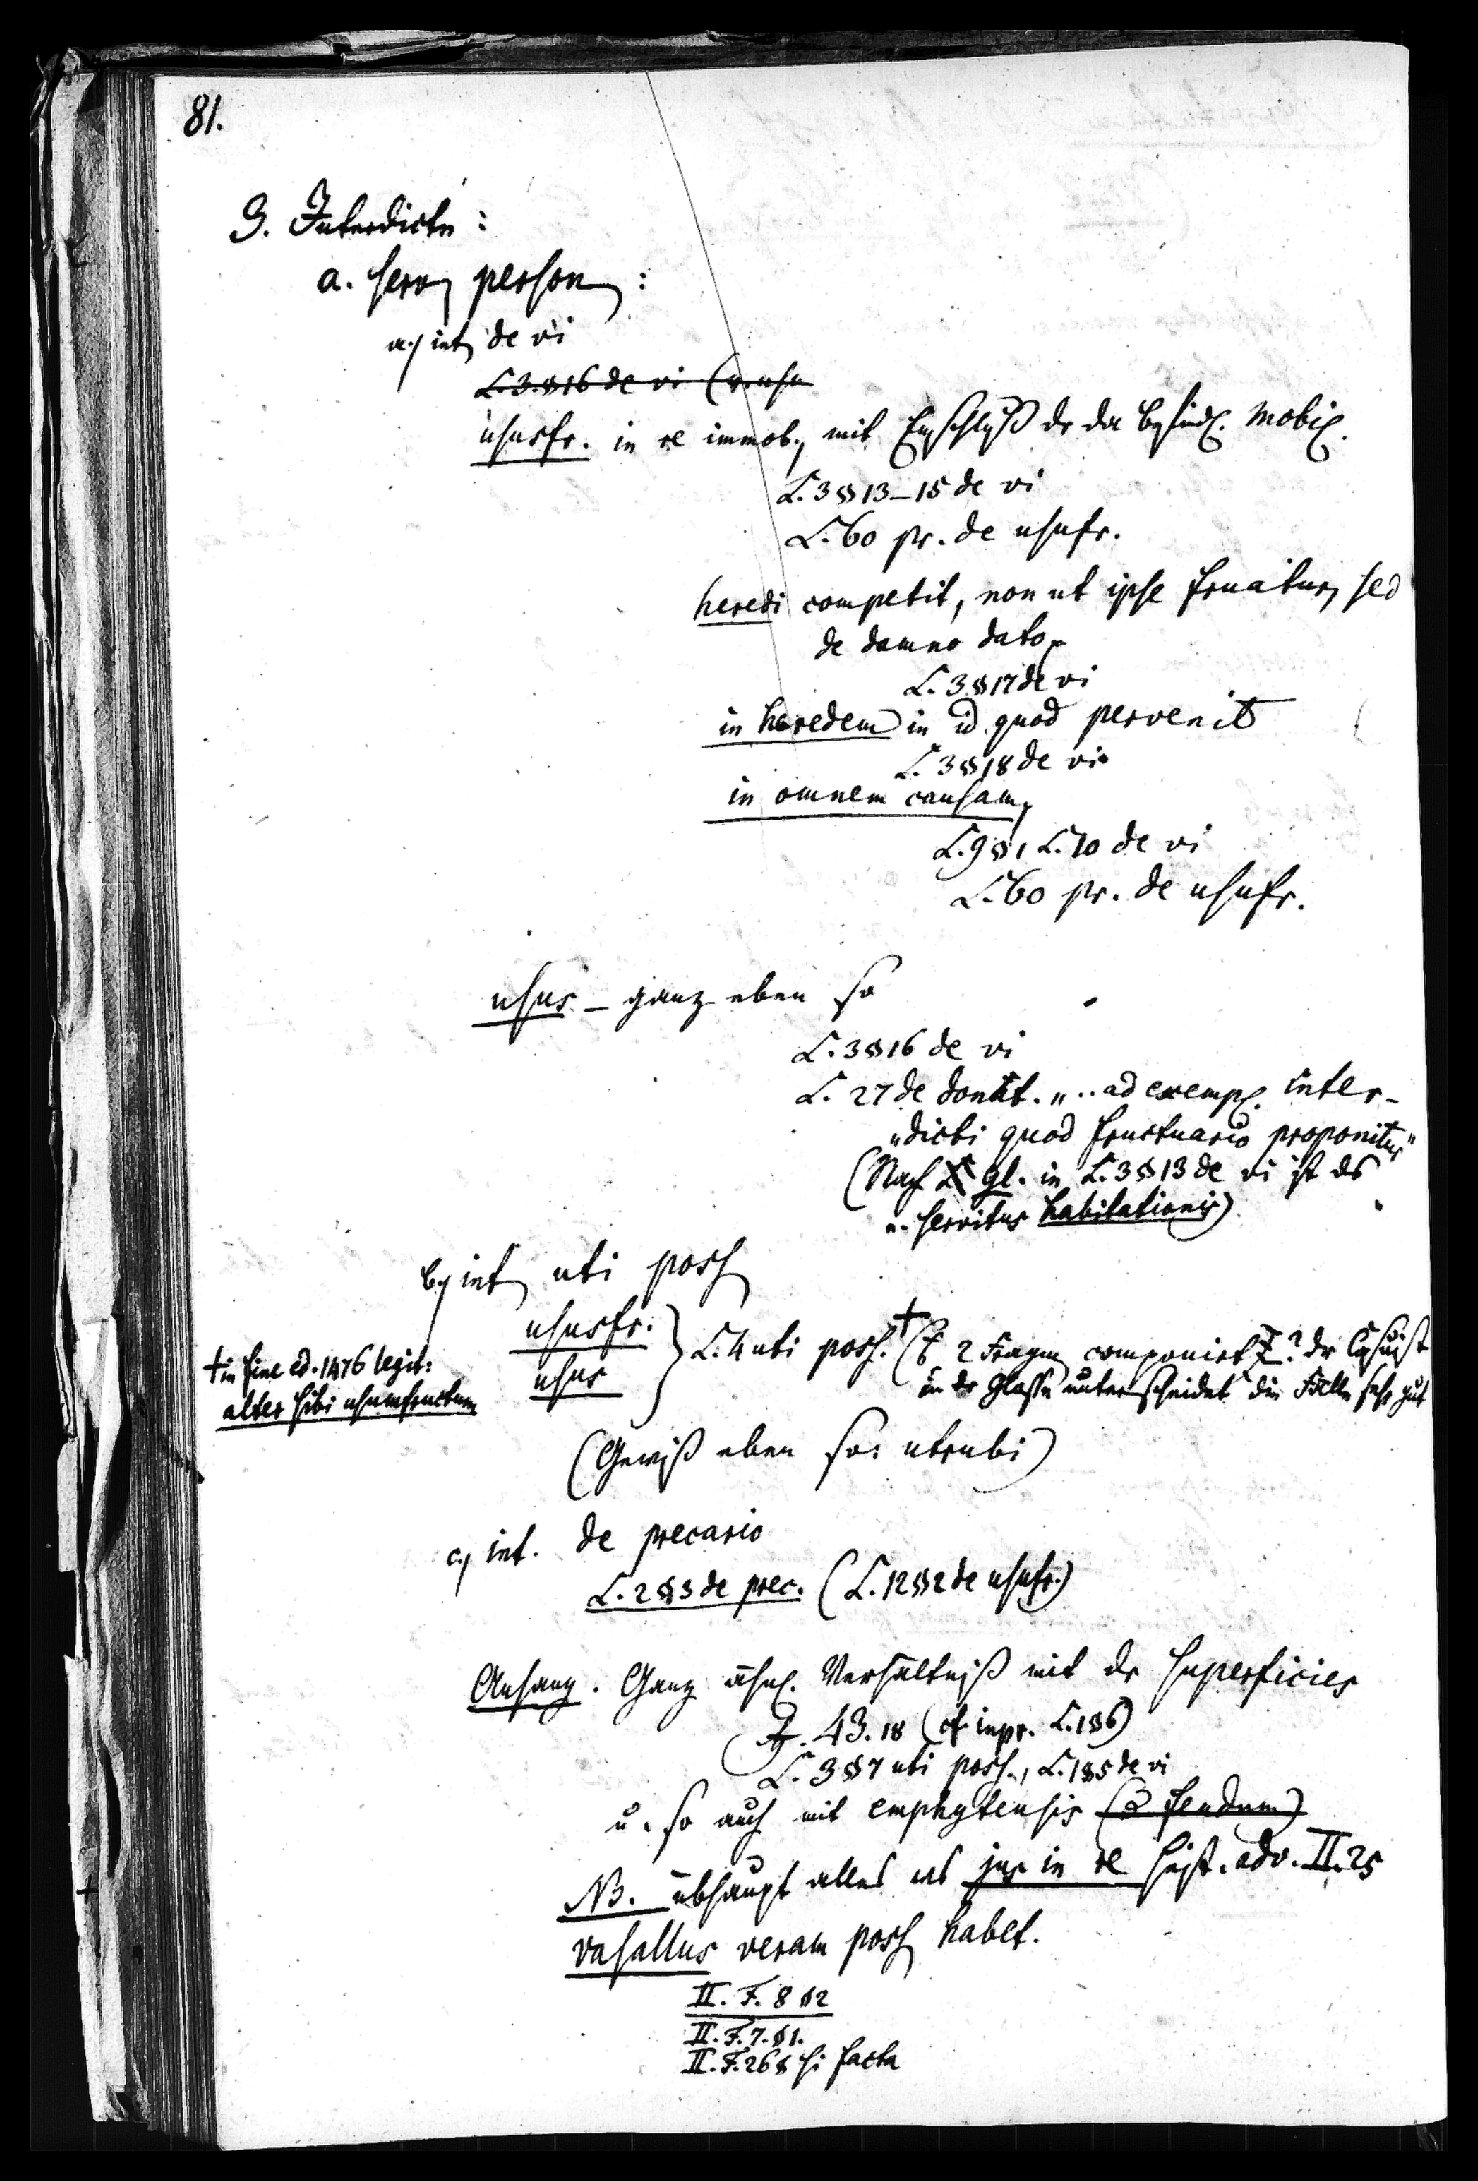 81.
3. Interdicte:
a. serv. person.:
a) int. de vi
L. 3. § 16 de vi (v. usu
ususfr. in re immob., mit Einschluß der da befindl. Mobil.
L. 3 § 13–15 de vi
L. 60 pr. de usufr.
heredi competit, non ut ipse fruatur, sed
de damno dato.
L. 3 § 17 de vi
in heredem in id quod pervenit
L. 3 § 18 de vi.
in omnem causam,
L. 9 § 1 L. 10 de vi
L. 60 pr. de usufr.
usus – ganz eben so
L. 3 § 16 de vi
L. 27 de donat. „.. ad exempl. inter-
„dicti quod fructuario proponitur"
(Nach gl. in L. 3 § 13 de vi ist das
servitus habitationis)
b) int. uti poss.
ususfr.
usus } L. 4 uti poss. † ( 2 Fragm. componirt? der Casuist
in der Glosse unterscheidet die Fälle sehr gut
† in fine ed. 1476 legit:
alter sibi usumfructum
(Gewiß eben so: utrubi)
c) int. de precario
L. 2 § 3 de prec. (L. 12 § 2 de usufr.)
Anhang. Ganz ähnl. Verhältniß mit der superficies
43. 18 (cf. inpr. L. 1 § 6)
L. 3 § 7 uti poss., L. 1 § 5 de vi
u. so auch mit emphyteusis (& feudum)
NB. überhaupt alles was jus in re heißt. adv. II. 25
vasallus veram poss. habet.
II. F. 8 § 2
II. F. 7. § 1.
II. F. 26 § si facta